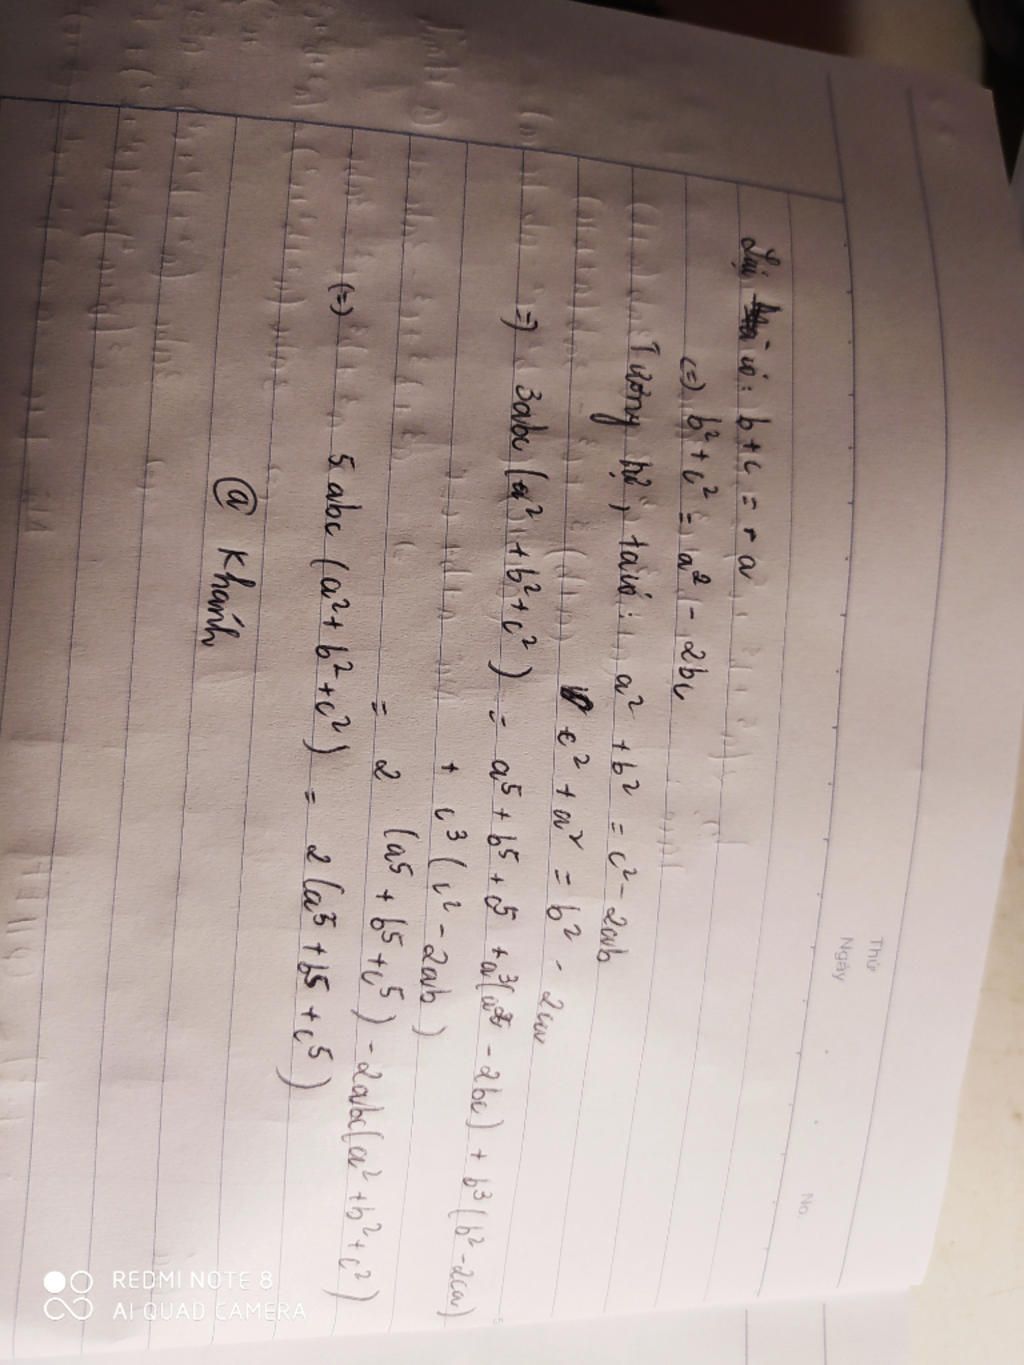 Thứ
Ngày
No.
Lại có: b+c = -a
<=> b² + c² = a² - 2bc
Tương tự, ta có: a² + b² = c² - 2ab
c² + a² = b² - 2ca
=> 3abc (a² + b² + c²) = a⁵ + b⁵ + c⁵ + a³(a² - 2bc) + b³(b² - 2ca)
+ c³(c² - 2ab)
= 2 (a⁵ + b⁵ + c⁵) - 2abc(a² + b² + c²)
<=> 5abc (a² + b² + c²) = 2(a⁵ + b⁵ + c⁵)
@ Khánh
REDMI NOTE 8
AI QUAD CAMERA